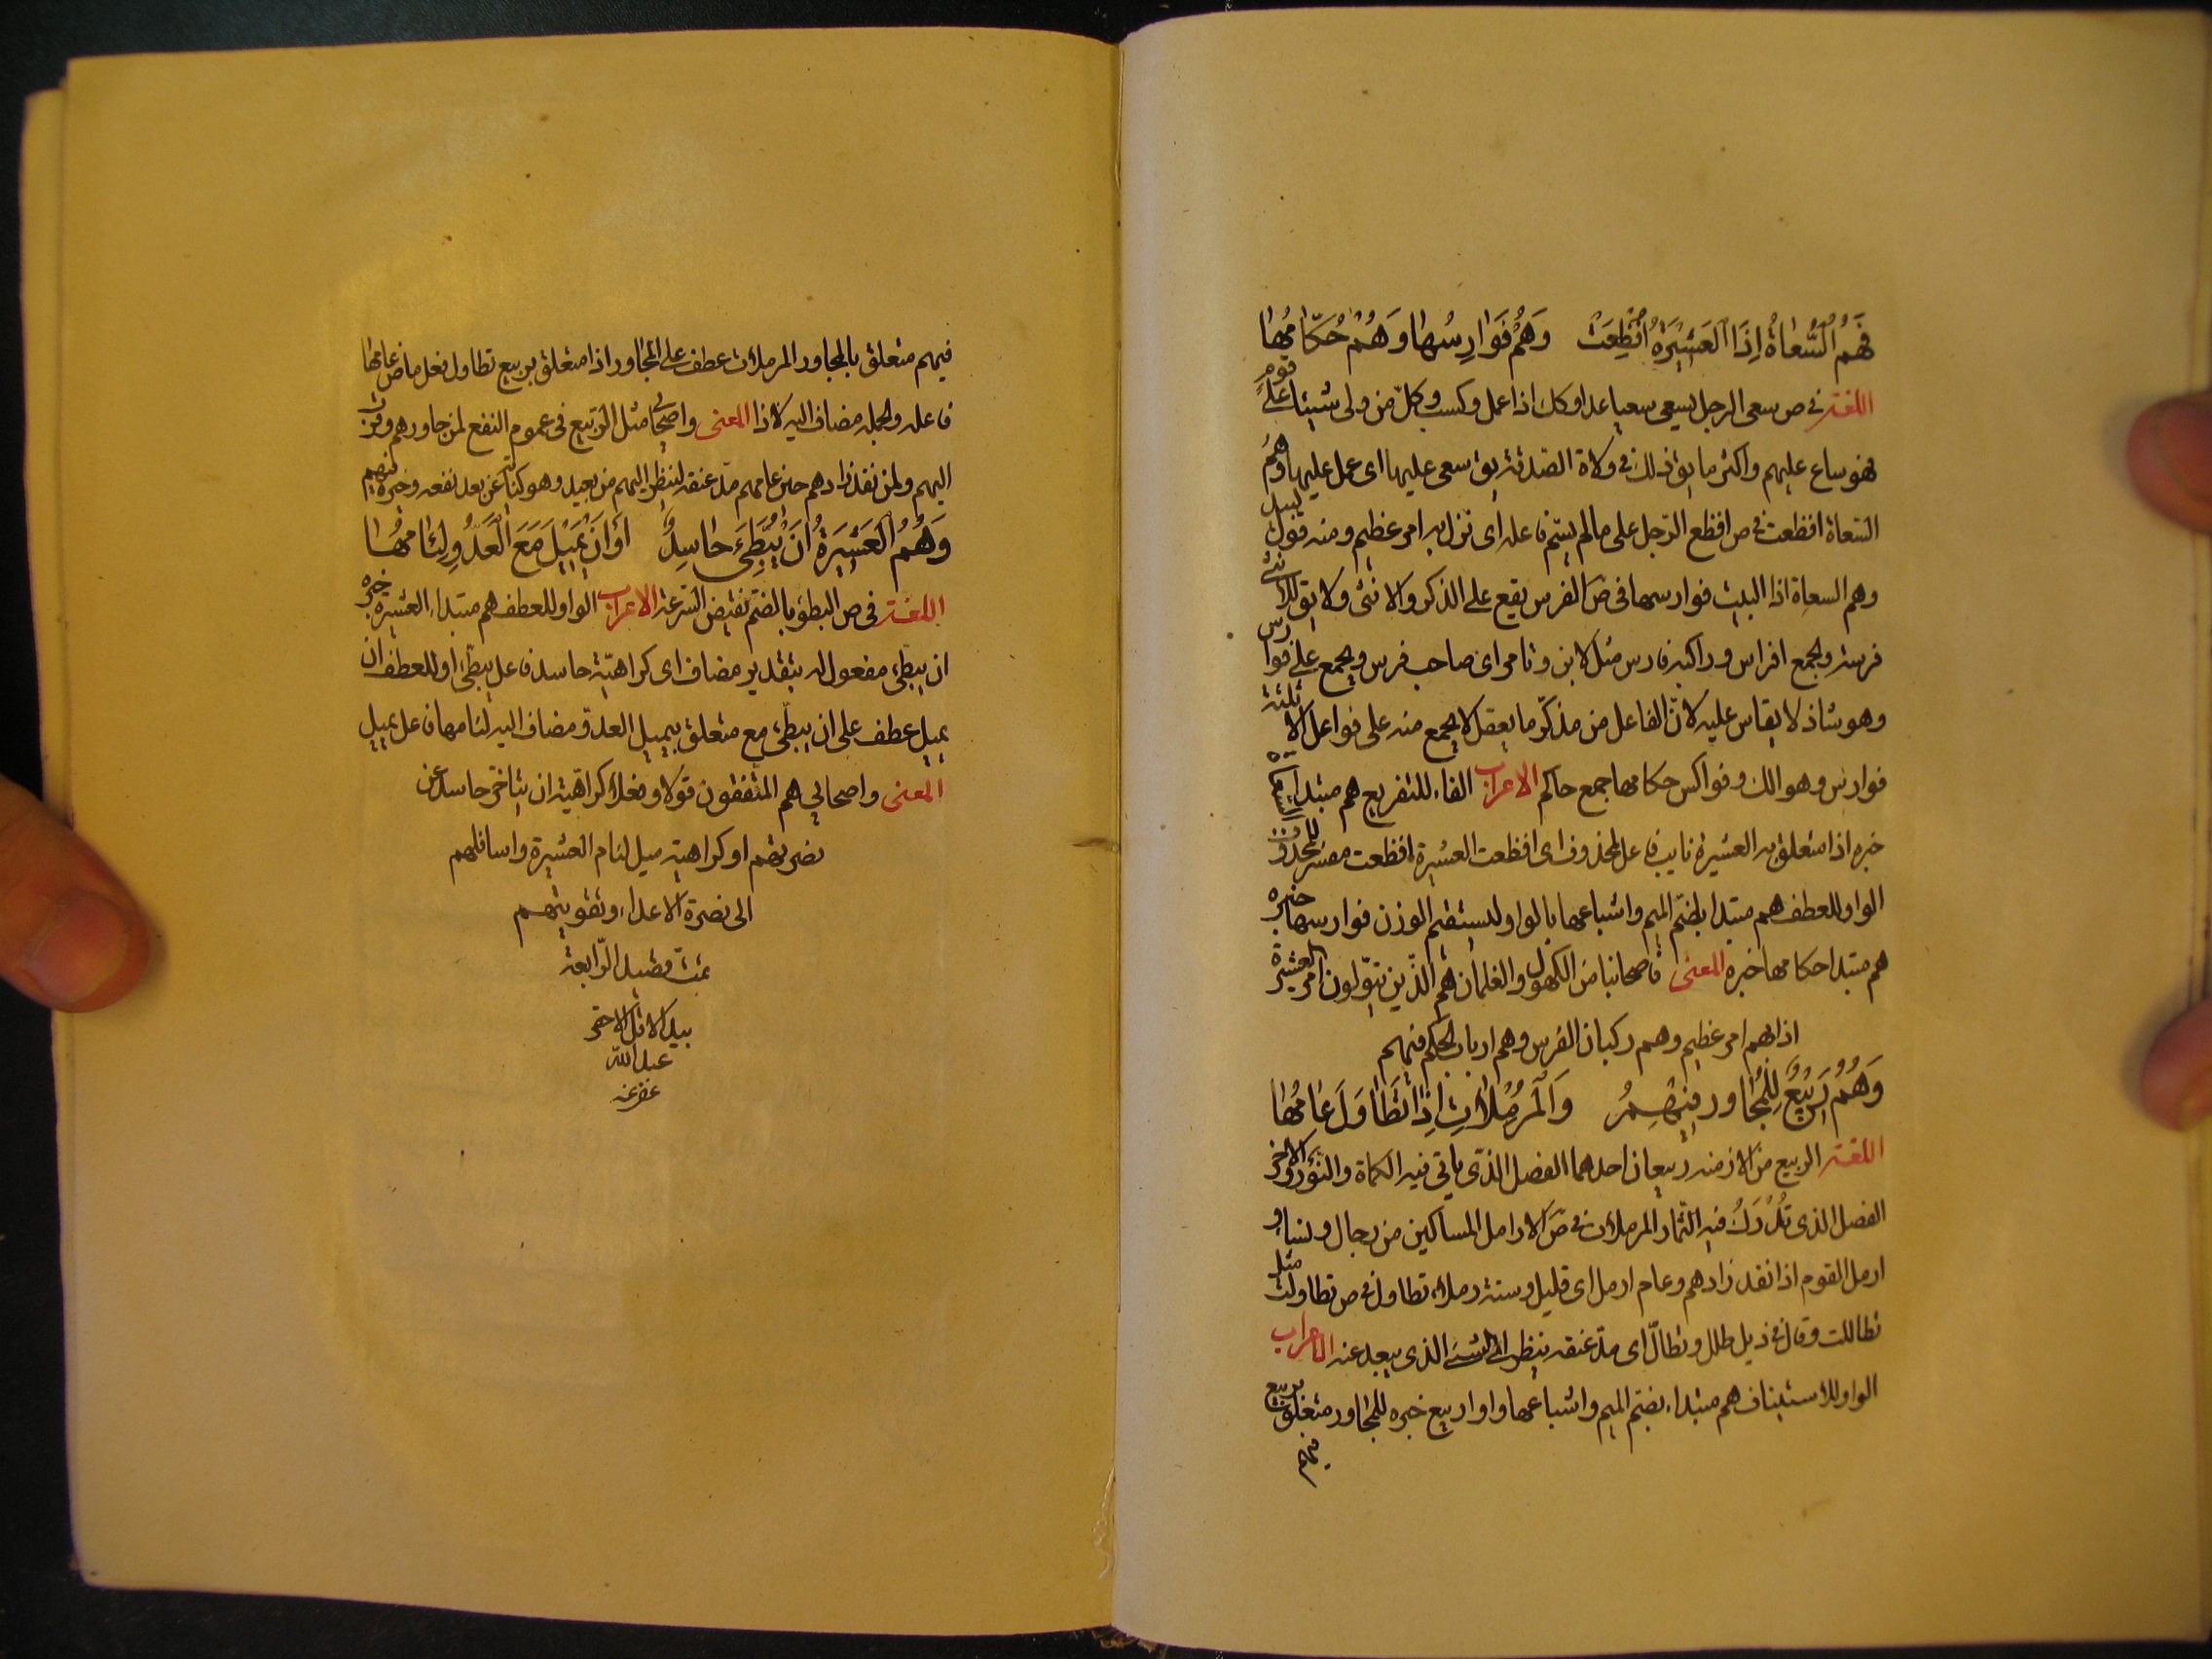 فَهُمُ السُّعَاةُ اِذَا الْعَشِيْرَةُ اُفْظِعَتْ وَهُمُ فَوَارِسُهَا وَهُمُ حُكّامُهَا
اللغة في ص سعى الرجل يسعى سعيا عدا وكك اذا عمل وكسب وكلّ من ولى شيئا على قوم
فهو ساع عليهم واكثر ما يق ذلك في ولاة الصدقة يق سعى عليها اى عمل عليها وهمُ
السّعاة افظعت في ص افظع الرّجل على ما لم يسّم فاعله اى نزل به امر عظيم ومنه قول لبيد
وهم السعاة اذا البيت فوارسها في ص الفرس يقع على الذكر والانثى ولا يق للانثى
فرسة والجمع افراس وراكبه فارس مثل لابن وتامر اى صاحب فرس ويجمع على فوارس
وهو شاذ لا يقاس عليه لانّ الفاعل من مذكّر ما يعقل لا يجمع منه على فواعل الا ثلثة
فوارس وهوالك ونواكس حكامها جمع حاكم الاعراب الفاء للتفريع هم مبتداء السعاة
خبره اذا متعلق به العشيرة نايب فاعل لمحذوف اى افظعت العشيرة افظعت مفسّر للمحذوف
الواو للعطف هم مبتدا بضمّ الميم واشباعها بالواو ليستقيم الوزن فوارسها خبره
هم مبتدا حكامها خبره المعنى فاصحابنا من الكهول والغلمان هم الذّين يتوّلون امر العشيرة
اذا لهم امر عظيم وهم ركبان الفرس وهم ارباب الحكم فيهم
وَهُمُ رَبِيْعٌ لِلْمُجَاوِرِ فِيْهِمُ وَالْمُرْمِلَاتِ اِذَا تَطَاوَلَ عَامُهَا
اللغة الربيع من الازمنه ربيعان احدهما الفصل الذّى ياتى فيه الكماة والنّور والاخر
الفصل الذى تُدْرَكُ فيه الثّمار المرملات في ص الارامل المساكين من رجال ونساء و
ارمل القوم اذا نفد زادهم وعام ارمل اى قليل وسنة رملاء تطاول في ص تطاولت مثل
تطاللت وقال في ذيل طلل وتطالّ اى مدّ عنقه ينظر الى الشئ الذى يبعد عنه الاعراب
الواو للاستيناف هم مبتداء بضّم الميم واشباعها واوا ربيع خبره للمجاور متعلق بربيع
فيهم
فيهم متعلق بالمجاور المرملات عطف على المجاور اذا متعلق بربيع تطاول فعل ماض عامها
فاعله والجمله مضاف اليه لاذا المعنى واصحابى مثل الرّبيع في عموم النفع لمن جاورهم وقرب
اليهم ولمن نفد زادهم حين عامهم مدّ عنقه لينظر اليهم من بعيد وهو كناية عن بعد نفعه وخيره فيهم
وَهُمُ الْعَشِيْرَةُ اَنْ يُبَطِّئَ حَاسِدٌ اَوْ اَنْ يَمِيْلَ مَعَ الْعَدُوِّ لِئَامُهَا
اللغة في ص البطؤ بالضّم نقيض السّرعة الاعراب الواو للعطف هم مبتداء العشيرة خبره
ان يبطّئ مفعول له بتقدير مضاف اى كراهيّة حاسد فاعل يبطّئ او للعطف ان
يميل عطف على ان يبطّئ مع متعلق بيميل العدّو مضاف اليه لئامها فاعل يميل
المعنى واصحابى هم المتّفقون قولا وفعلا كراهّية ان يتاخّر حاسد عن
نصرتهم او كراهية ميل لئام العشيرة واسافلهم
الى نصرة الاعداء وتقويتهم
تمّت قصيدة الرّابعة
بيد الاقل الاحقر
عبد اللّه
عفى عنه